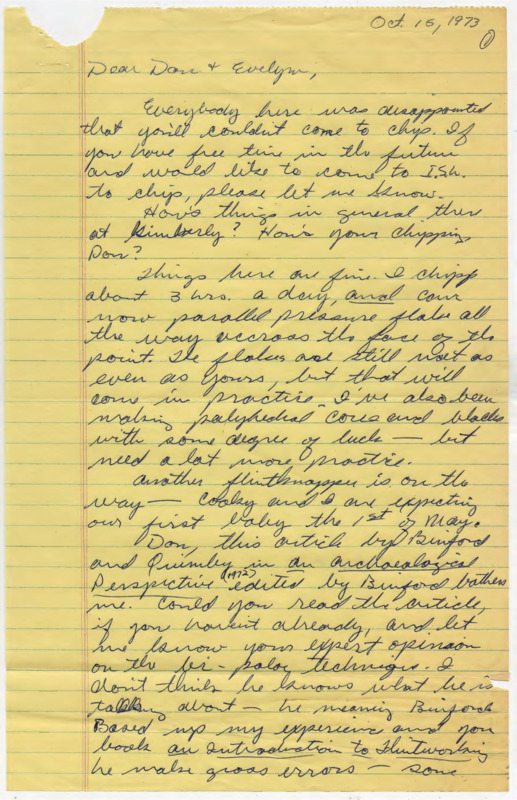 Oct. 15, 1973
①
Dear Don & Evelyn,
Everybody here was disappointed
that you'll couldn't come to chip. If
you have free time in the future
and would like to come to I.S.U.
to chip, please let me know.
How's things in general there
at Kimberly? How's your chipping
Don?
Things here are fine. I chip
about 3 hrs. a day, and can
now parallel pressure flake all
the way accross the face of the
point. The flakes are still not as
even as yours, but that will
come in practice. I've also been
making polyhedral cores and blades
with some degree of luck — but
need a lot more practice.
Another flintknapper is on the
way — Cooky and I are expecting
our first baby the 1st of May.
Don, this article by Binford
and Quimby in an archaeological
Perspective (1972) edited by Binford bothers
me. Could you read the article,
if you havent already, and let
me know your expert opinion
on the bi-polar technique. I
don't think he knows what he is
talking about — he meaning Binford.
Based up my experience and you
book an Introduction to Flintworking
he make gross errors — some